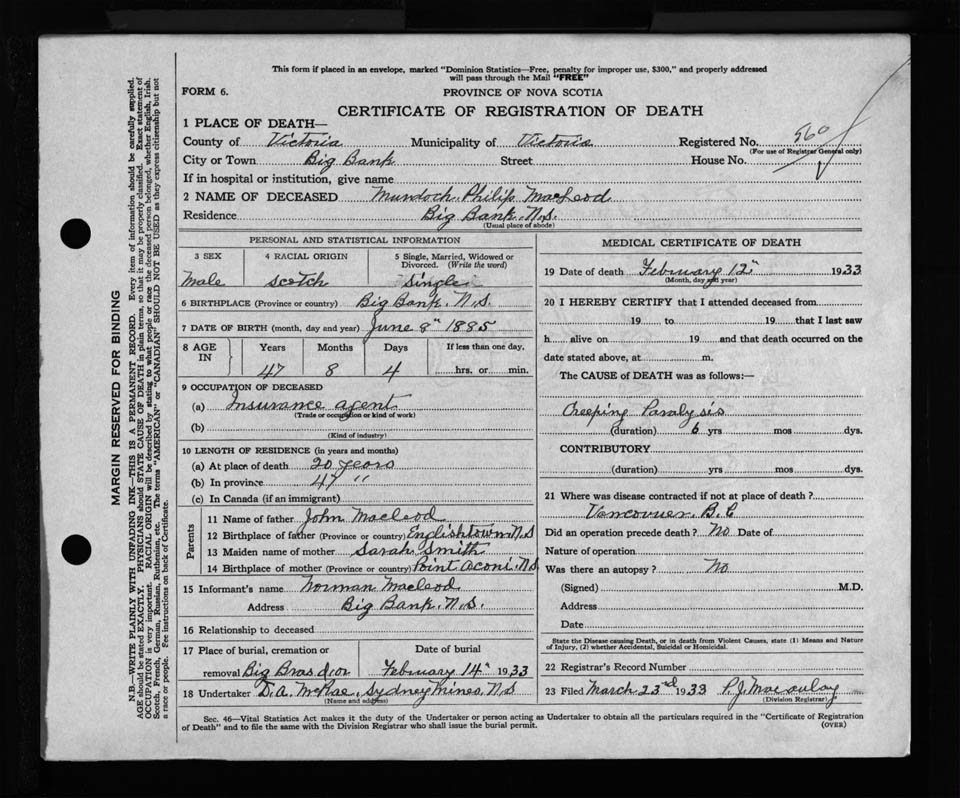 This form if placed in an envelope, marked "Dominion Statistics—Free, penalty for improper use, $300," and properly addressed
will pass through the Mail "FREE"
FORM 6.
PROVINCE OF NOVA SCOTIA
CERTIFICATE OF REGISTRATION OF DEATH
1 PLACE OF DEATH—
County of Victoria Municipality of Victoria Registered No. 560
(For use of Registrar General only)
City or Town Big Bank Street House No.
If in hospital or institution, give name
2 NAME OF DECEASED Murdoch Philip MacLeod
Residence Big Bank. N.S.
(Usual place of abode)
PERSONAL AND STATISTICAL INFORMATION
3 SEX 4 RACIAL ORIGIN 5 Single, Married, Widowed or
Divorced. (Write the word)
Male Scotch Single
6 BIRTHPLACE (Province or country) Big Bank. N.S.
7 DATE OF BIRTH (month, day and year) June 8" 1885
8 AGE IN Years Months Days If less than one day,
47 8 4 hrs. or min.
9 OCCUPATION OF DECEASED
(a) Insurance agent
(Trade or occupation or kind of work)
(b)
(Kind of industry)
10 LENGTH OF RESIDENCE (in years and months)
(a) At place of death 20 years
(b) In province 47 "
(c) In Canada (if an immigrant)
Parents
11 Name of father John Macleod
12 Birthplace of father (Province or country) Englishtown N.S
13 Maiden name of mother Sarah Smith
14 Birthplace of mother (Province or country) Point Aconi. N.S
15 Informant's name Norman Macleod
Address Big Bank. N.S.
16 Relationship to deceased
17 Place of burial, cremation or Date of burial
removal Big Bras d'or February 14" 1933
18 Undertaker D.A. McRae, Sydney Mines, N.S
(Name and address)
MEDICAL CERTIFICATE OF DEATH
19 Date of death February 12" 1933
(Month, day and year)
20 I HEREBY CERTIFY that I attended deceased from
19 to 19 that I last saw
h alive on 19 and that death occurred on the
date stated above, at m.
The CAUSE of DEATH was as follows:—
Creeping Paralysis
(duration) 6 yrs mos dys.
CONTRIBUTORY
(duration) yrs mos dys.
21 Where was disease contracted if not at place of death?
Vancouver B.C
Did an operation precede death? No Date of
Nature of operation
Was there an autopsy? No
(Signed) M.D.
Address
Date
State the Disease causing Death, or in death from Violent Causes, state (1) Means and Nature
of Injury, (2) whether Accidental, Suicidal or Homicidal.
22 Registrar's Record Number
23 Filed March 23rd 1933 P.J. Macaulay
(Division Registrar)
Sec. 46—Vital Statistics Act makes it the duty of the Undertaker or person acting as Undertaker to obtain all the particulars required in the "Certificate of Registration
of Death" and to file the same with the Division Registrar who shall issue the burial permit. (OVER)
MARGIN RESERVED FOR BINDING
N.B.—WRITE PLAINLY WITH UNFADING INK—THIS IS A PERMANENT RECORD. Every item of information should be carefully supplied.
AGE should be stated EXACTLY. PHYSICIANS should STATE CAUSE OF DEATH in plain terms, so that it may be properly classified. Exact statement of
OCCUPATION is very important. RACIAL ORIGIN will be described by stating to what people or race the deceased person belonged, whether English, Irish,
Scotch, French, German, Russian, Ruthenian, etc. The terms "AMERICAN" or "CANADIAN" SHOULD NOT BE USED as they express citizenship but not
a race or people. See instructions on back of Certificate.